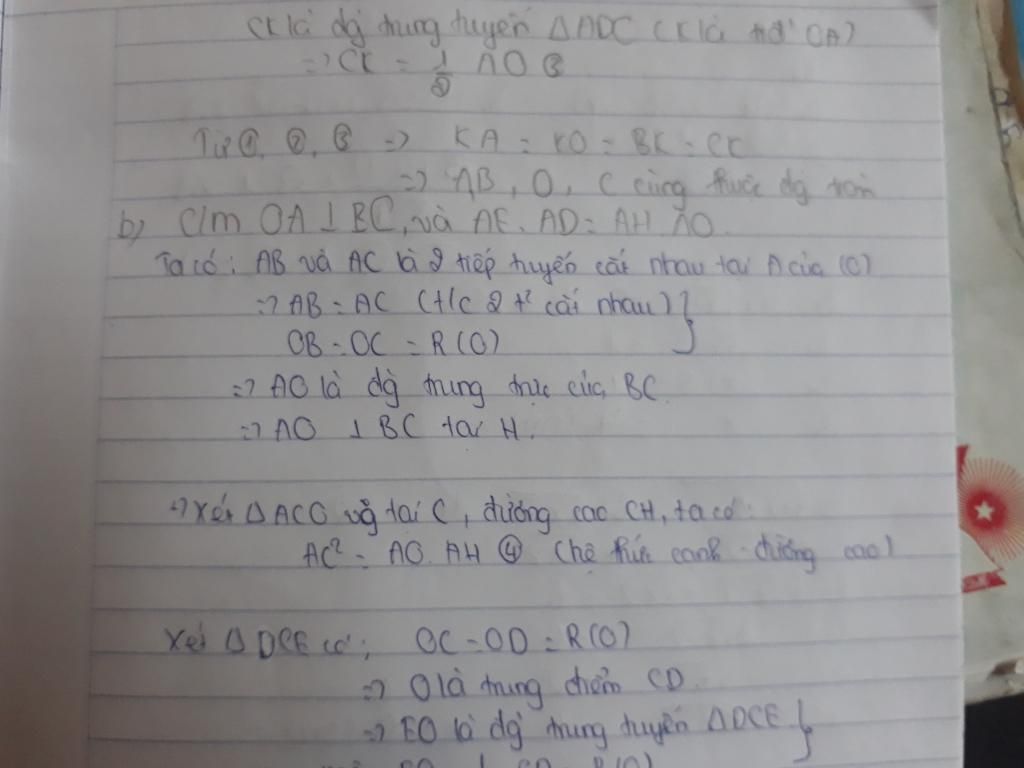 CK là đg trung tuyến ΔADC (K là tđ' OA)
=> CK = 1/2 AO ③
Từ ①, ②, ③ => KA = KO = BK = CK
=> AB, O, C cùng thuộc đg tròn
b) C/m OA ⊥ BC, và AE. AD = AH. AO.
Ta có: AB và AC là 2 tiếp tuyến cắt nhau tại A của (O)
=> AB = AC (t/c 2 t² cắt nhau)
OB = OC = R(O)
=> AO là đg trung trực của BC.
=> AO ⊥ BC tại H.
+) Xét ΔACO vg tại C, đường cao CH, ta có:
AC² = AO. AH ④ (hệ thức cạnh - đường cao)
Xét ΔDCE có: OC = OD = R(O)
=> O là trung điểm CD.
=> EO là đg trung tuyến ΔDCE